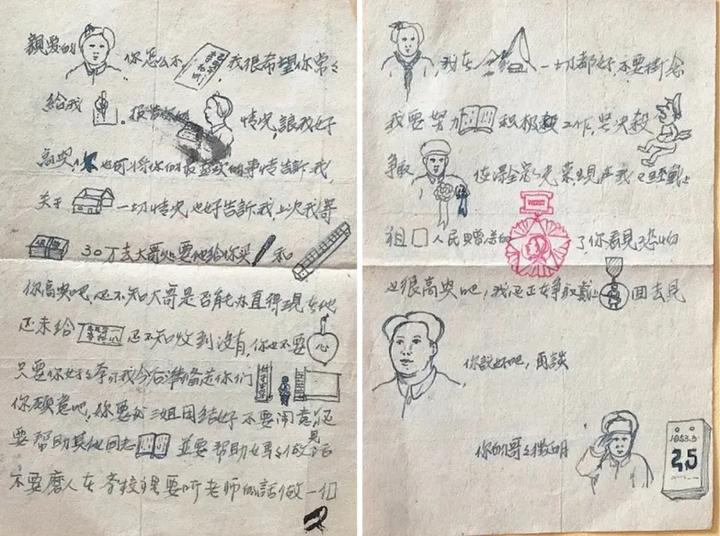 親爱的 你怎么不 我很希望你常々
給我 报告 情况,讓我好
高兴 也可将你们最喜歡的事情告訴我,
关于 一切情况也好告訴我上次我寄
30万去大哥処要他給你买 和
你高兴吧,还不知大哥是否能办
还未给 还不知收到没有,你也不要 心
只要你好好学习我今后準備送你们
你願意吧,你要和三姐团结好不要闹意见
要帮助其他同志 並要帮助 做活
不要磨人在学校里要听老师的話做一们
我在 一切都好不要掛念
我要努力 积极 工作,坚决殺
爭取 使得全家光荣現在我已經戴上
祖□人民贈送的 了你看見恐怕
也很高兴吧,我还正在爭取戴上 回去見
你說好吧,再談
你的哥々徵明
1953.3.
25